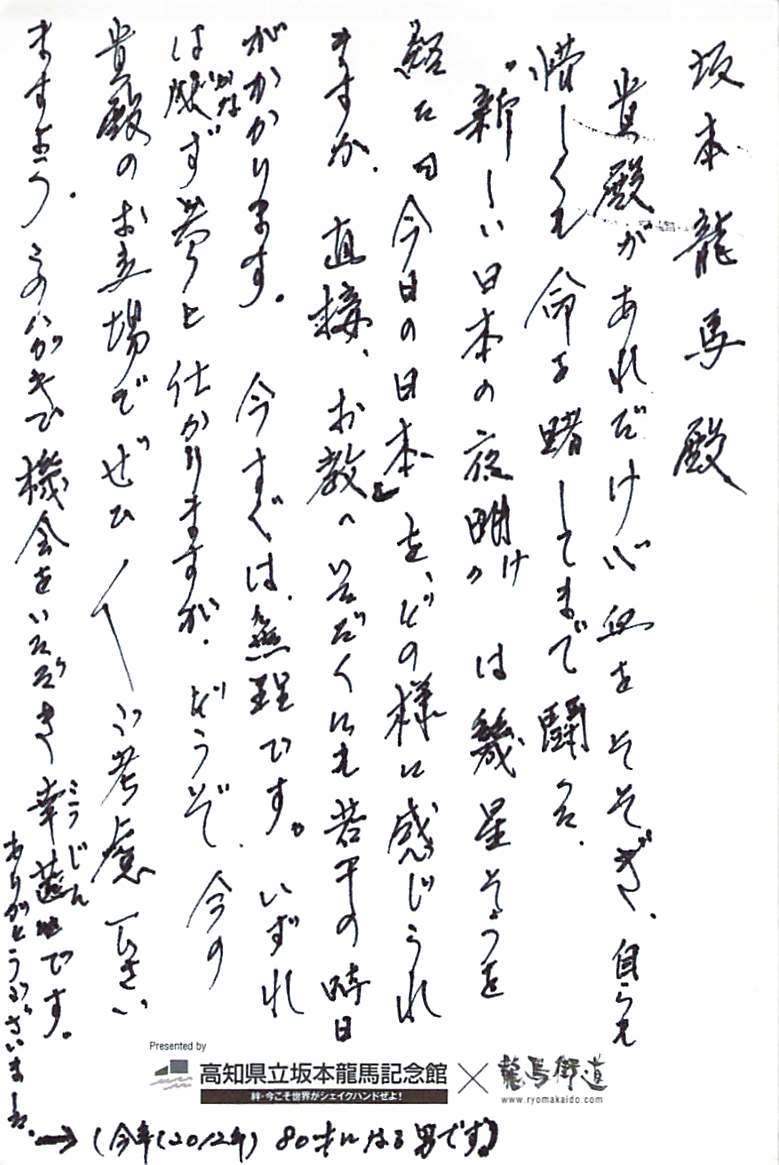 坂本龍馬殿
貴殿があれだけ心血をそそぎ、自らも
惜しくも命を賭してまで闘った、
"新しい日本の夜明け"は幾星そうを
経た日今日の日本を、どの様に感じられ
ますか、直接、お教へいただくにも若干の時日
がかかります。今すぐは無理です。いずれ
は必ず夢と仕かりますが、どうぞ、今の
貴殿のお立場でぜひ〳〵ご考慮下さい
ますよう。このハガキで機会をいただき幸甚です。
こうじん
ありがとうございました。
→(今年(2012年)80才になる男です)
Presented by
高知県立坂本龍馬記念館 × 龍馬街道
絆・今こそ世界がシェイクハンドぜよ!
www.ryomakaido.com